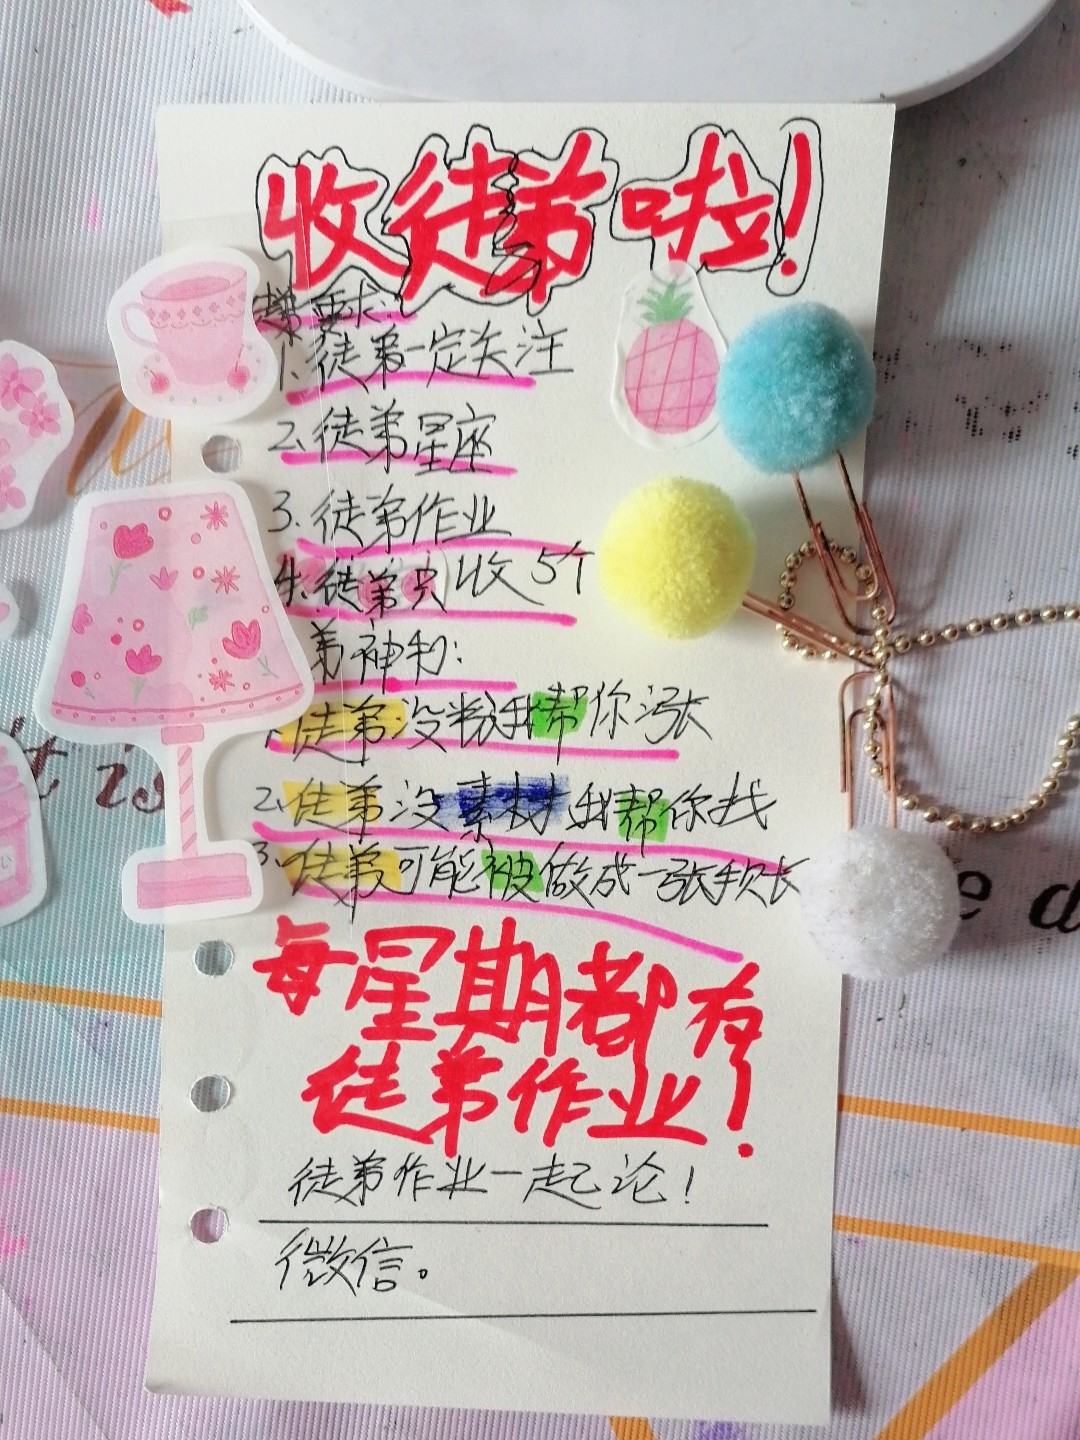 收徒弟啦!
要求:
1、徒弟一定关注
2、徒弟星座
3、徒弟作业
4、徒弟只收5个
弟神利:
1、徒弟没粉我帮你涨
2、徒弟没素材我帮你找
3、徒弟可能被做成一张手帐
每星期都有
徒弟作业!
徒弟作业一起论!
微信。
t is
e d